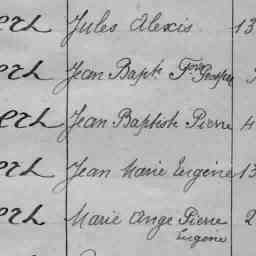 erh Jules Alexis 13
erh Jean Bapt. Fois Prosper
erh Jean Baptiste Pierre 4
erh Jean Marie Eugène 13
erh Marie Ange Pierre 2
Eugène